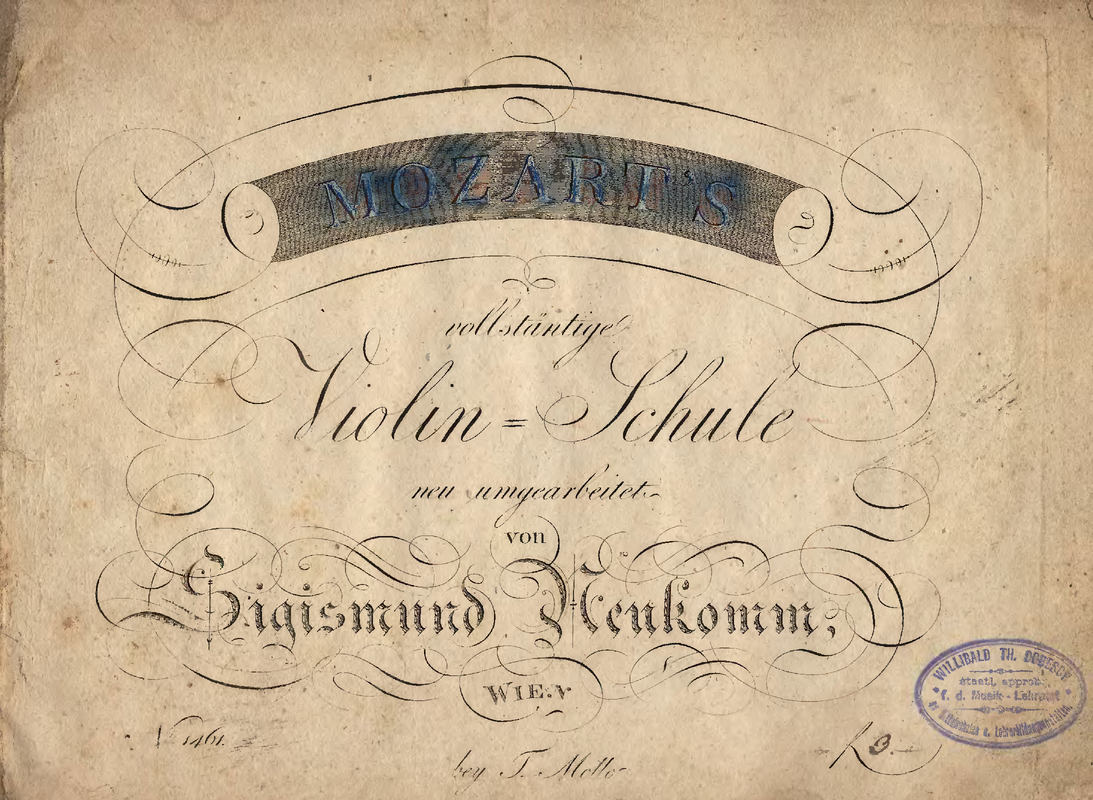 MOZART'S
vollstäntige
Violin = Schule
neu umgearbeitet
von
Sigismund Neukomm,
WIEN
N 1461.
bey T. Mollo
WILLIBALD TH.
staatl. approb.
f. d. Musik - Lehramt